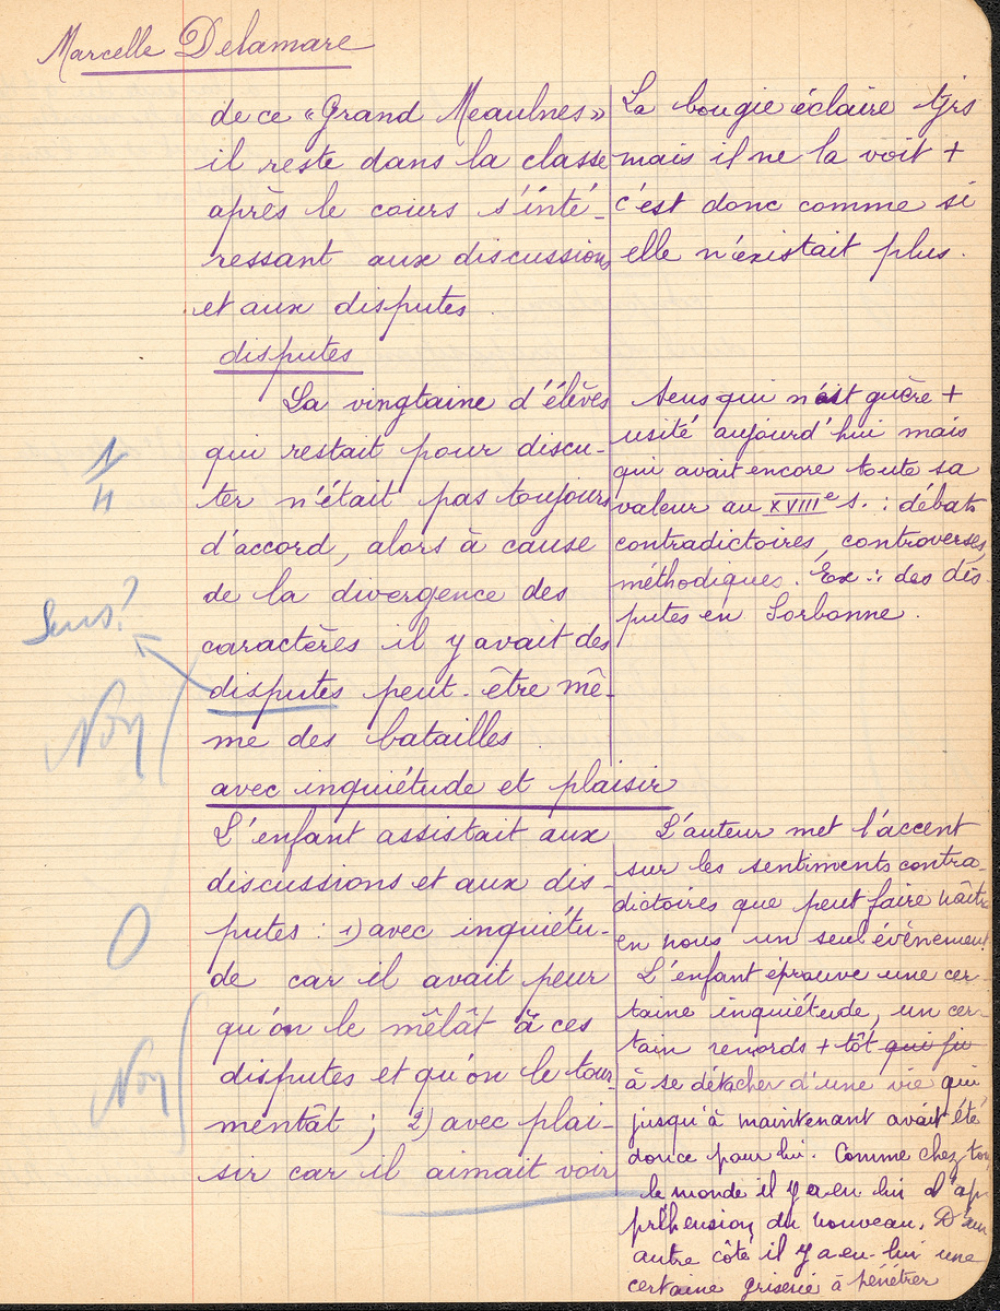 Marcelle Delamare
de ce « Grand Meaulnes »
il reste dans la classe
après le cours s'inté-
ressant aux discussions
et aux disputes.
disputes
La vingtaine d'élèves
qui restait pour discu-
ter n'était pas toujours
d'accord, alors à cause
de la divergence des
caractères il y avait des
disputes peut-être mê-
me des batailles.
1/4
Sens?
Non
avec inquiétude et plaisir
L'enfant assistait aux
discussions et aux dis-
putes : 1) avec inquiétu-
de car il avait peur
qu'on le mêlât à ces
disputes et qu'on le tour-
mentât ; 2) avec plai-
sir car il aimait voir
0
Non
La bougie éclaire tjrs
mais il ne la voit +
c'est donc comme si
elle n'existait plus.
Sens qui n'est guère +
usité aujourd'hui mais
qui avait encore toute sa
valeur au XVIIIe s. : débats
contradictoires, controverses,
méthodiques. Ex : des dis-
putes en Sorbonne.
L'auteur met l'accent
sur les sentiments contra-
dictoires que peut faire naître
en nous un seul évènement.
L'enfant éprouve une cer-
taine inquiétude, un cer-
tain remords + tôt qui fu
à se détacher d'une vie qui
jusqu'à maintenant avait été
douce pour lui. Comme chez tou
le monde il y a en lui d'ap-
préhension du nouveau. D'un
autre côté il y a en lui une
certaine griserie à pénétrer